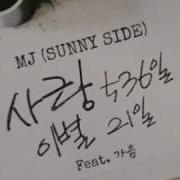 MJ (SUNNY SIDE)
사랑 536일
이별 21일
Feat. 가음